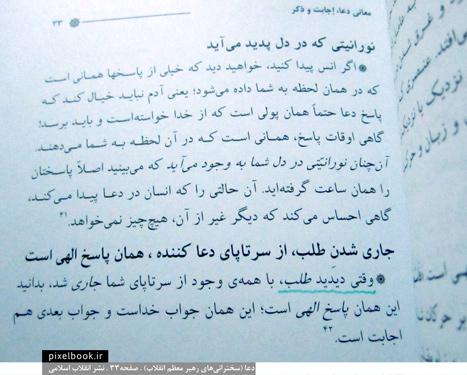 معانی دعا، اجابت و ذکر
۳۳
نورانیتی که در دل پدید می‌آید
اگر انس پیدا کنید، خواهید دید که خیلی از پاسخها همانی است
که در همان لحظه به شما داده می‌شود؛ یعنی آدم نباید خیال کند که
پاسخ دعا حتماً همان پولی است که از خدا خواسته‌است و باید برسد!
گاهی اوقات پاسخ، همانی است که در آن لحظه به شما می‌دهند.
آن‌چنان نورانیّتی در دل شما به وجود می‌آید که می‌بینید اصلاً پاسختان
را همان ساعت گرفته‌اید. آن حالتی را که انسان در دعا پیدا می‌کند،
گاهی احساس می‌کند که دیگر غیر از آن، هیچ‌چیز نمی‌خواهد.۴۱
جاری شدن طلب، از سرتاپای دعا کننده ، همان پاسخ الهی است
وقتی دیدید طلب، با همه‌ی وجود از سرتاپای شما جاری شد، بدانید
این همان پاسخ الهی است؛ این همان جواب خداست و جواب بعدی هم
اجابت است.۴۲
pixelbook.ir
دعا (سخنرانی‌های رهبر معظم انقلاب) . صفحه۳۳ . نشر انقلاب اسلامی